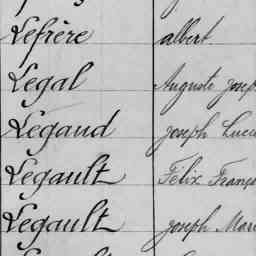 Lefrère albert.
Legal Auguste Josep
Légaud joseph Lucie
Legault Félix Franço
Legault joseph Mari